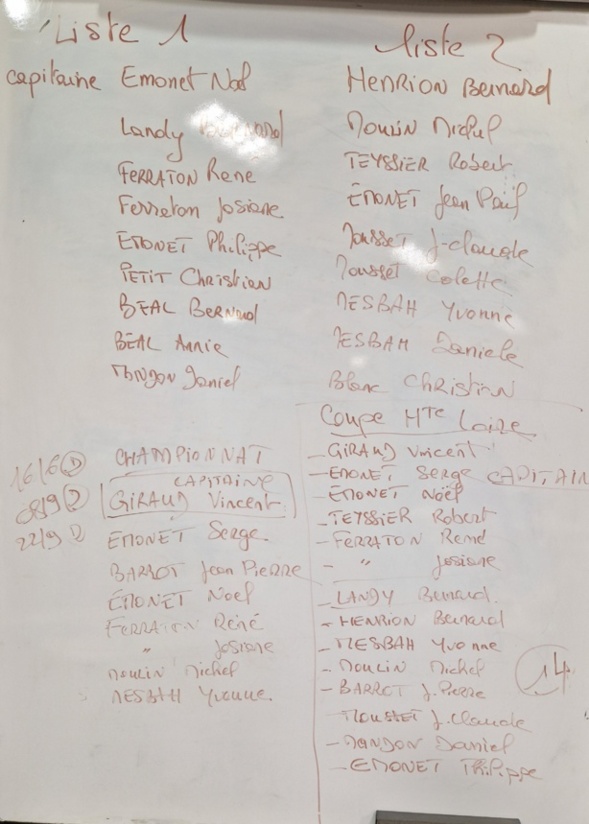 Liste 1
capitaine Emonet Noël
Landy Bernard
FERRATON René
Ferraton Josiane
EMONET Philippe
PETIT Christian
BEAL Bernard
BEAL Annie
MANDON Daniel
liste 2
HENRION Bernard
MOULIN Michel
TEYSSIER Robert
EMONET Jean Paul
Mousset J-claude
Mousset Colette
MESBAH Yvonne
MESBAH Daniele
Blanc Christian
16/6
08/9
22/9
CHAMPIONNAT
CAPITAINE
GIRAUD Vincent
EMONET Serge
BARROT Jean Pierre
EMONET Noël
FERRATON René
" Josiane
Moulin Michel
MESBAH Yvonne
Coupe Hte Loire
- GIRAUD Vincent
- EMONET Serge CAPITAIN
- EMONET Noël
- TEYSSIER Robert
- FERRATON René
- " Josiane
- LANDY Bernard
- HENRION Bernard
- MESBAH Yvonne
- Moulin Michel
- BARROT J.Pierre
MOUSSET J.Claude
- MANDON Daniel
- EMONET Philippe
14